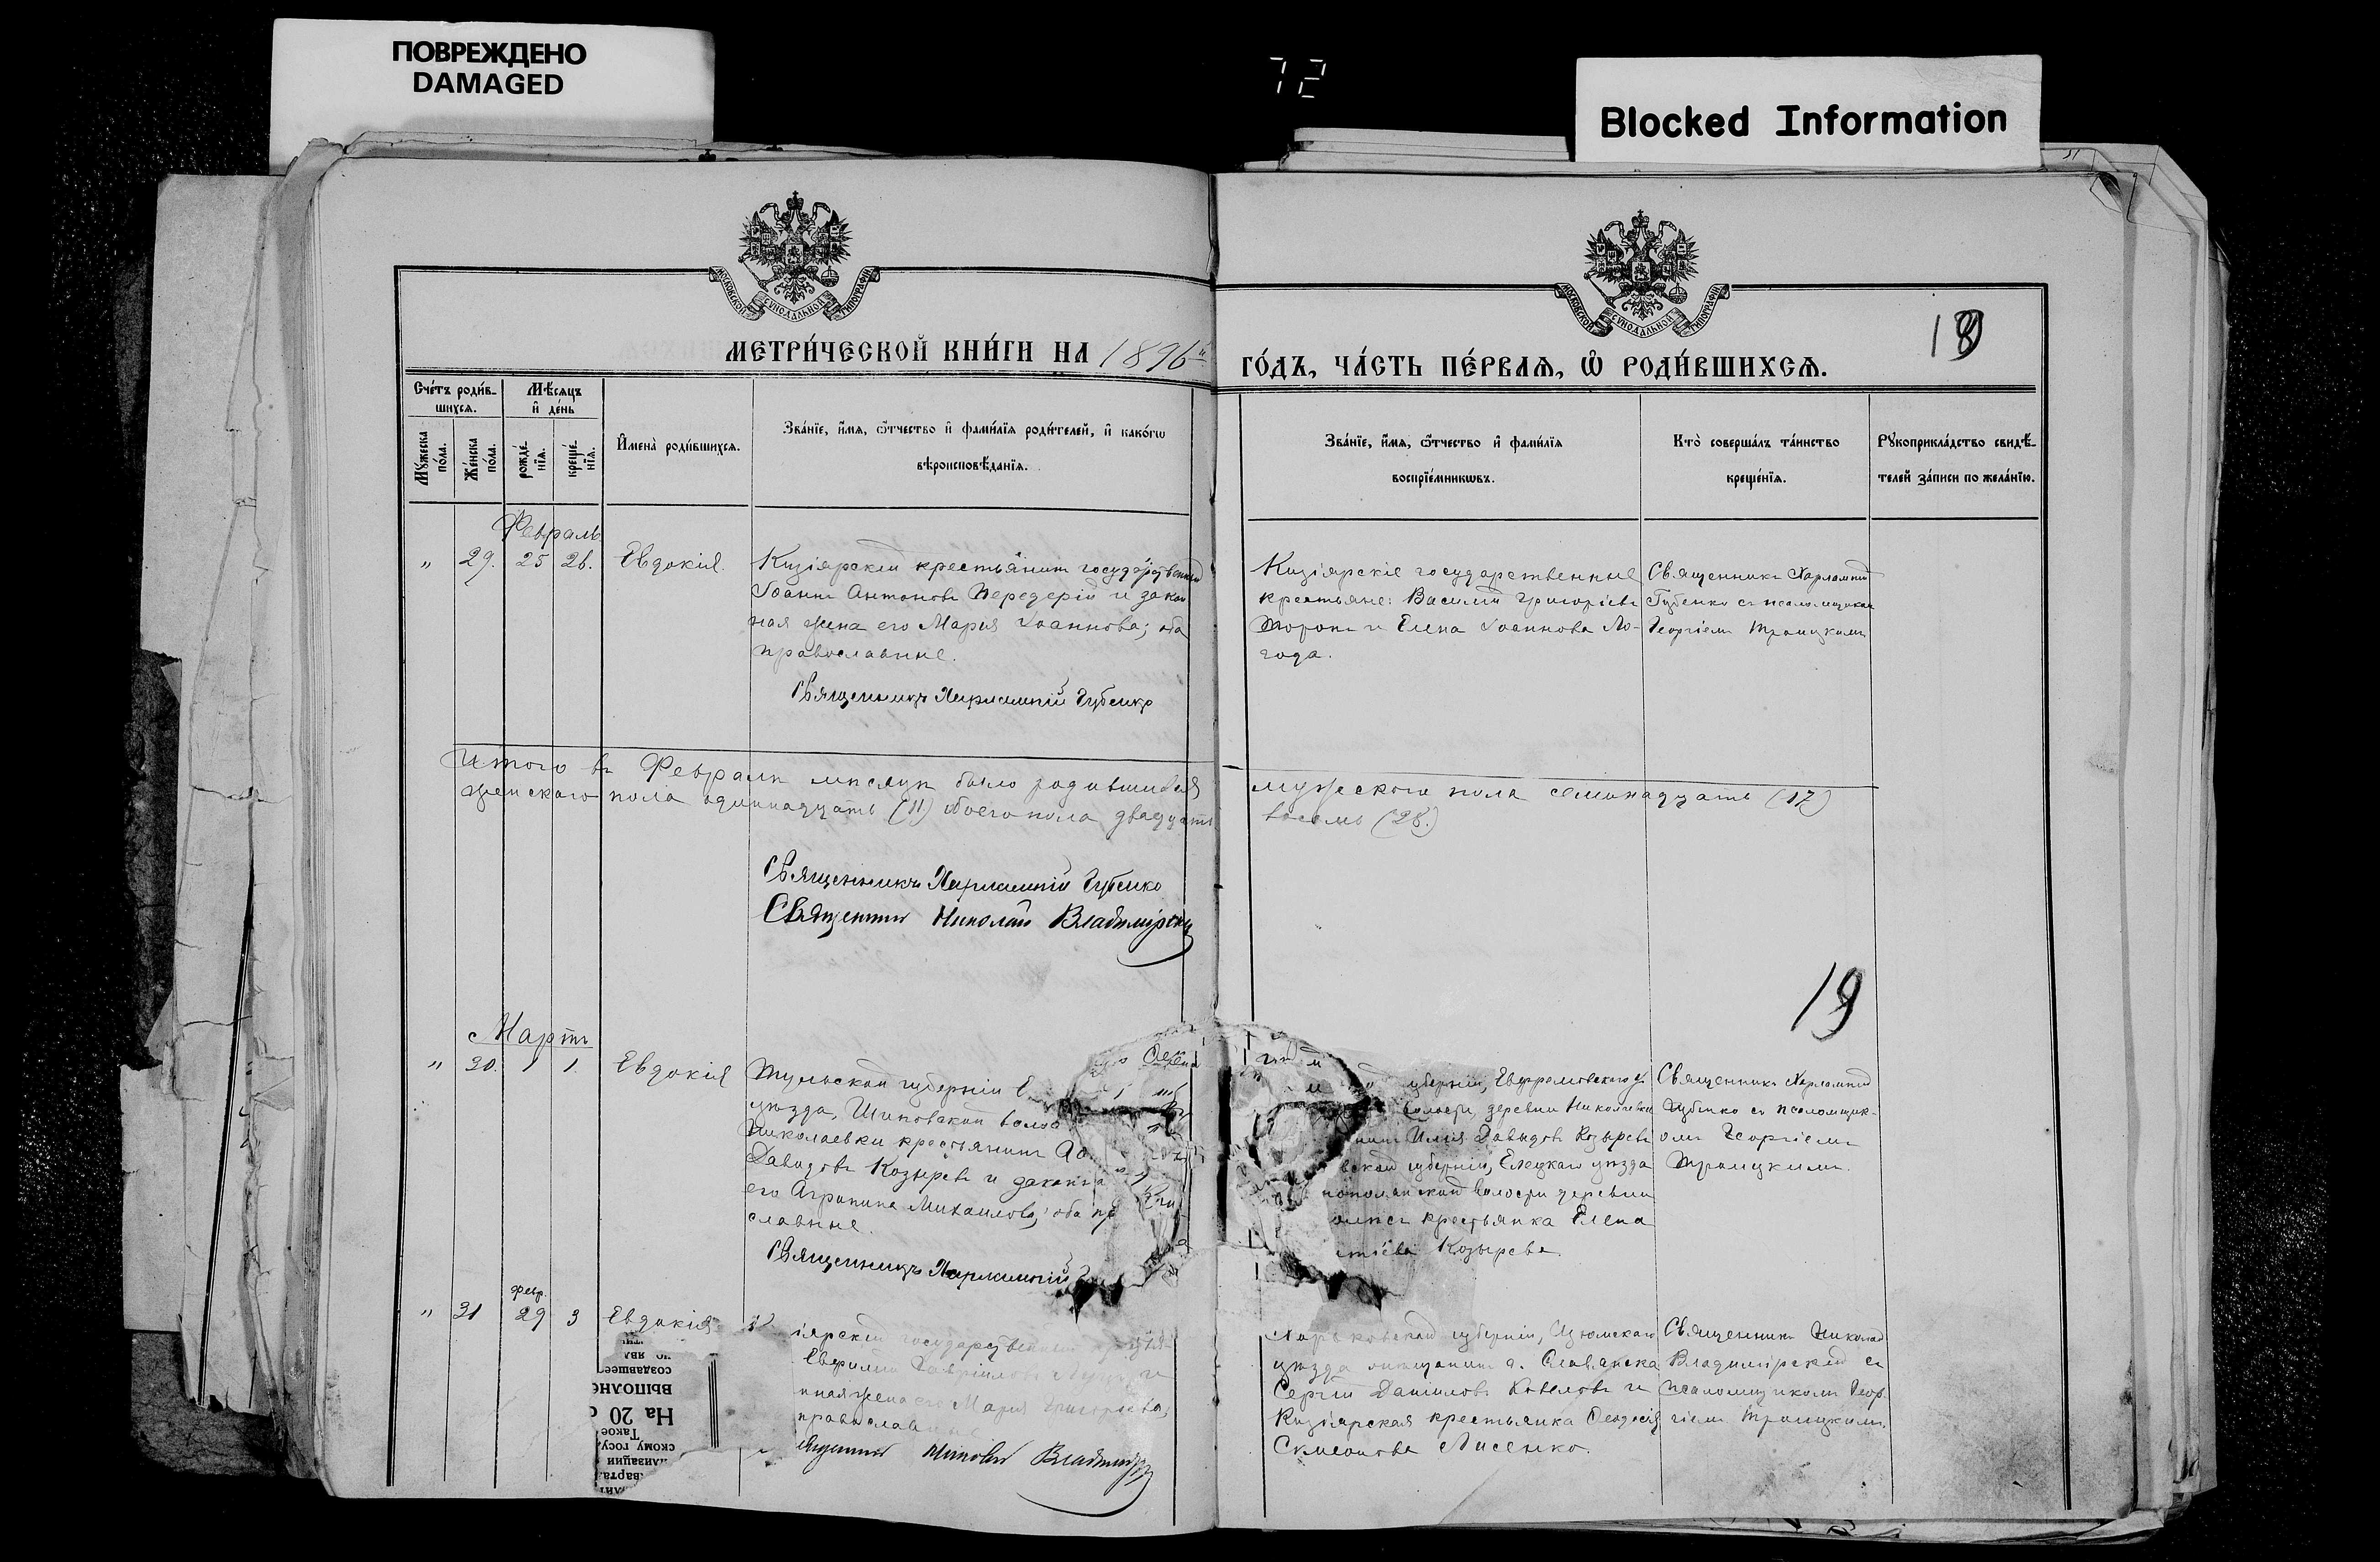 ПОВРЕЖДЕНО
DAMAGED
72
Blocked Information
МОСКОВСКОЙ СУНОДАЛЬНОЙ ТИПОГРАФІИ
МОСКОВСКОЙ СУНОДАЛЬНОЙ ТИПОГРАФІИ
МЕТРИ́ЧЕСКОЙ КНИ́ГИ НА 1896й
ГО́ДЪ, ЧА́СТЬ ПЕ́РВАѦ, Ѡ҆ РОДИ́ВШИХСѦ.
19
Сче́тъ роди́в-
шихсѧ.
Мѣ́сѧцъ
и҆ де́нь
Мꙋ́жеска
по́ла.
Же́нска
по́ла.
рожде́-
нїѧ.
креще́-
нїѧ.
И҆мена̀ роди́вшихсѧ.
Зва́нїе, и҆́мѧ, ѻ҆́тчество и҆ фами́лїѧ роди́телей, и҆ како́гѡ
вѣроисповѣ́данїѧ.
Зва́нїе, и҆́мѧ, ѻ҆́тчество и҆ фами́лїѧ
воспрїе́мникѡвъ.
Кто̀ соверша́лъ та́инство
креще́нїѧ.
Рꙋкоприкла́дство свидѣ́-
телей за́писи по жела́нїю.
Февраль
" 29. 25 26. Евдокія.
Кизіярскій крестьянинъ государственный
Іоаннъ Антоновъ Передерій и закон
ная жена его Марія Іоаннова; оба
православные.
Священникъ Харлампій Губенко
Кизіярскіе государственные
крестьяне: Василій Григоріевъ
и Елена Іоаннова Ло-
года.
Священникъ Харлампій
Губенко съ псаломщикомъ
Георгіемъ Троицкимъ
Итого въ Февралѣ мѣсяцѣ было родившихся
мужескаго пола семнадцать (17)
женскаго пола одиннадцать (11) обоего пола двадцать
восемь (28.)
Священникъ Харлампій Губенко
Священникъ Николай Владимірскій
19
Мартъ
" 30. 1 1. Евдокія
Тульской губерніи Е
уѣзда, Шиповской волос
Николаевки крестьянинъ
Давидовъ Козыревъ и законна
его Агрипина Михаилова; оба пр
славные.
Священникъ Харлампій
уберніи, Ефремовскаго у
волости, деревни Николаевки
нинъ Илія Давидовъ Козыревъ
вской губерніи, Елецкаго уѣзда
волости деревни
крестьянка Елена
Козырева.
Священникъ Харлампій
Губенко съ псаломщик-
омъ Георгіемъ
Троицкимъ.
" 31 февр. 29 3 Евдокія
іярскій государственный
Евфимій Гавріиловъ
нная жена его Марія Григоріева,
православные
Николай Владимірскій
Харьковской губерніи, Изюмскаго
уѣзда мѣщанинъ г. Славянска
Сергій Даніиловъ Ковалевъ и
Кизіярская крестьянка Ѳеодосія
Симеонова Лисенко.
Священникъ Николай
Владимірскій съ
псаломщикомъ Геор-
гіемъ Троицкимъ.
создавшее
ВЫПОЛНЕ
На 20
Такое
скому госу